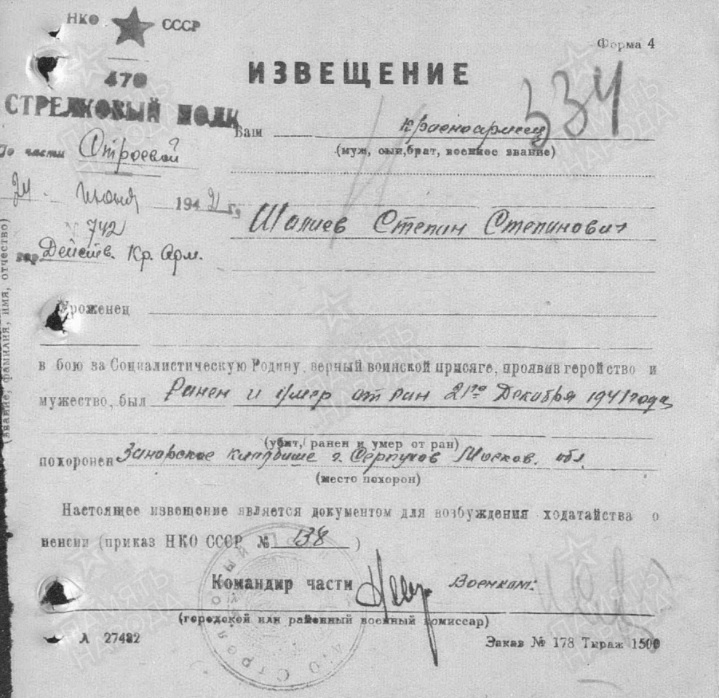 НКО СССР
Форма 4
470
СТРЕЛКОВЫЙ ПОЛК
ИЗВЕЩЕНИЕ
334
По части Строевой
Ваш красноармеец
(муж, сын, брат, военное звание)
24 июня 1942 г.
№ 742
Шалиев Степан Степанович
гор. Действ. Кр. Арм.
Уроженец
(звание, фамилия, имя, отчество)
в бою за Социалистическую Родину, верный воинской присяге, проявив геройство и
мужество, был Ранен и умер от ран 21го Декабря 1941 года
(убит, ранен и умер от ран)
похоронен Занарское кладбище г. Серпухов Москов. обл.
(место похорон)
Настоящее извещение является документом для возбуждения ходатайства о
пенсии (приказ НКО СССР № 138)
Командир части
Военком:
(городской или районный военный комиссар)
А 27482
Заказ № 178 Тираж 1500
ПАМЯТЬ НАРОДА